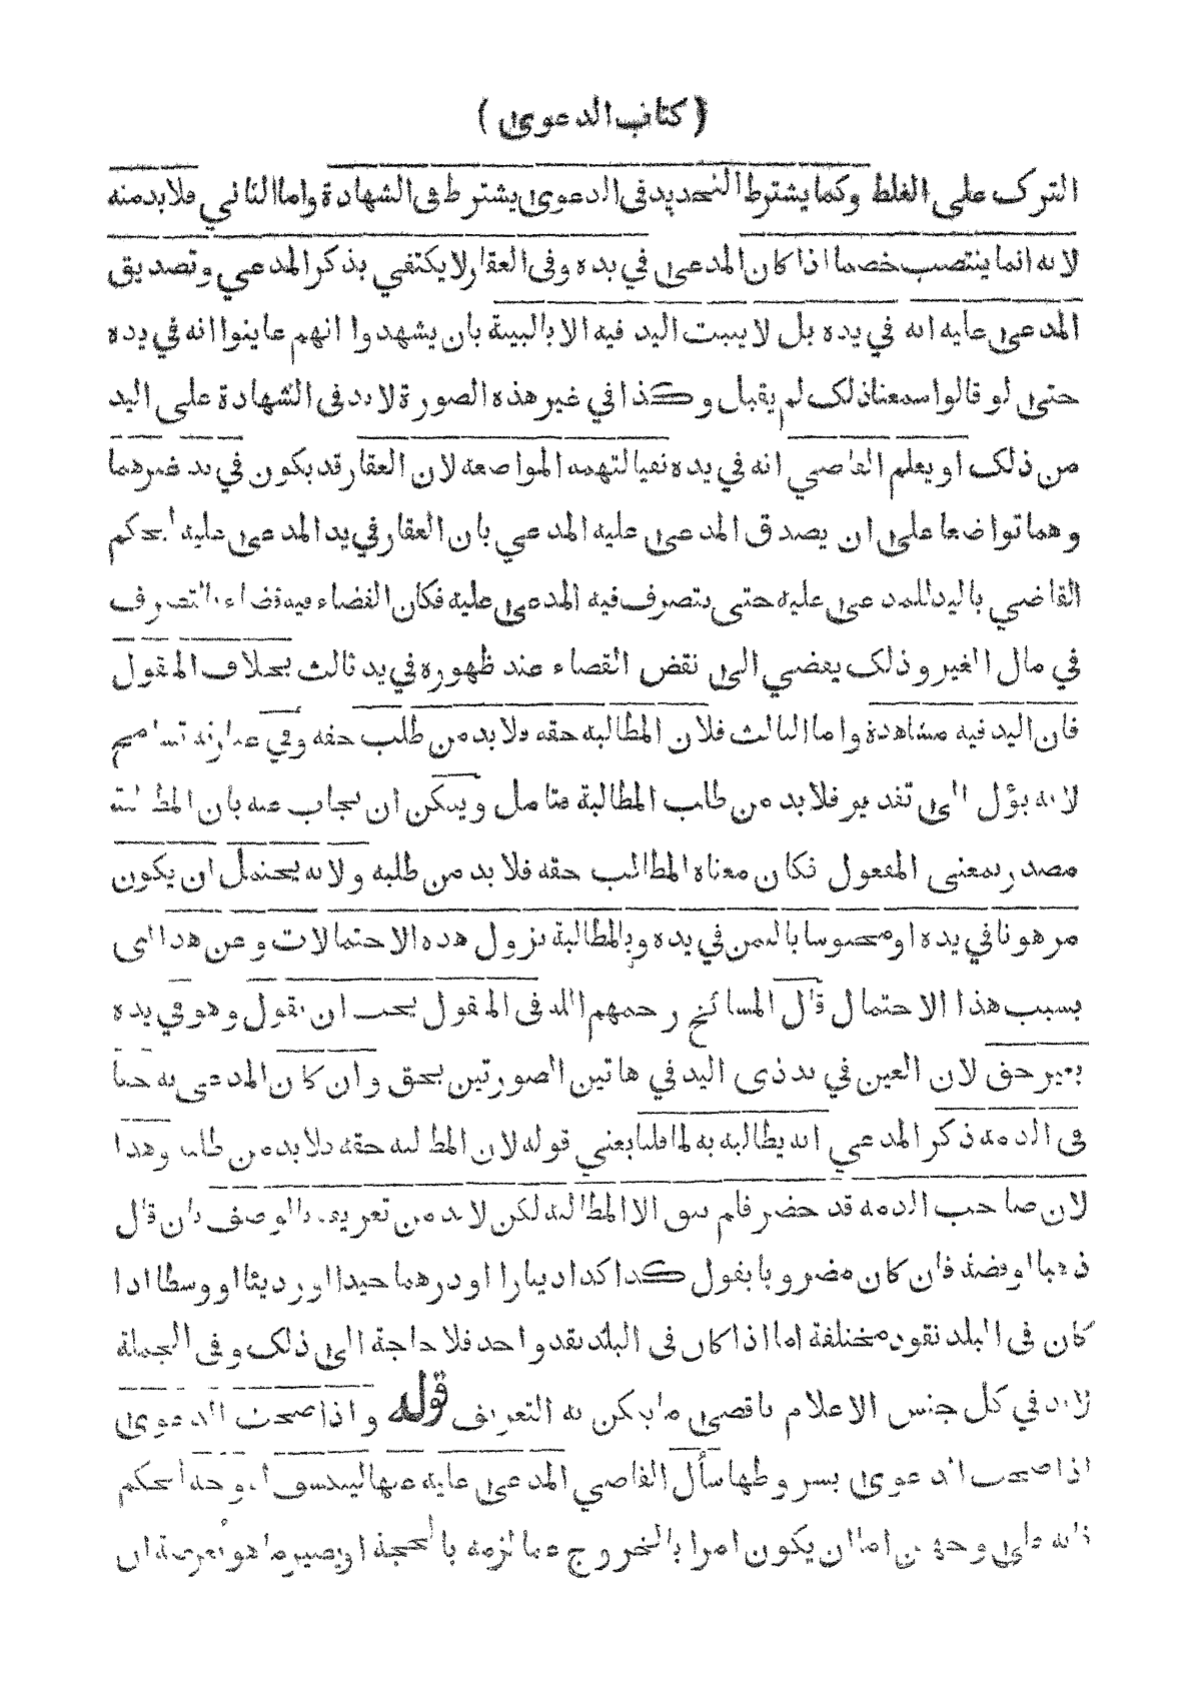 ( كتاب الدعوى )
الترك على الغلط وكما يشترط التحديد في الدعوى يشترط في الشهادة واما الثاني فلا بد منه
لانه انما ينتصب خصما اذا كان المدعى في يده وفي العقار لا يكتفي بذكر المدعي وتصديق
المدعى عليه انه في يده بل لا يثبت اليد فيه الا بالبينة بان يشهدوا انهم عاينوا انه في يده
حتى لو قالوا سمعنا ذلك لم يقبل وكذا في غير هذه الصورة لا بد في الشهادة على اليد
من ذلك او يعلم القاضي انه في يده نفيا لتهمة المواضعة لان العقار قد يكون في يد غيرهما
وهما تواضعا على ان يصدق المدعى عليه المدعي بان العقار في يد المدعى عليه ليحكم
القاضي باليد للمدعى عليه حتى يتصرف فيه المدعى عليه فكان القضاء فيه قضاء بالتصرف
في مال الغير وذلك يفضي الى نقض القضاء عند ظهوره في يد ثالث بخلاف المنقول
فان اليد فيه مشاهدة واما الثالث فلان المطالبة حقه فلا بد من طلب حقه وفي عبارته تسامح
لانه يؤل الى تقدير فلا بد من طلب المطالبة فتامل ويمكن ان يجاب عنه بان المطالبة
مصدر بمعنى المفعول فكان معناه المطالب حقه فلا بد من طلبه ولانه يحتمل ان يكون
مرهونا في يده او محبوسا بالثمن في يده وبالمطالبة يزول هذه الاحتمالات وعن هذا اى
بسبب هذا الاحتمال قال المشائخ رحمهم الله في المنقول يجب ان يقول وهو في يده
بغير حق لان العين في يد ذى اليد في هاتين الصورتين بحق وان كان المدعى به حقا
في الذمة ذكر المدعي انه يطالبه به لما قلنا يعني قوله لان المطالبة حقه فلا بد من طلبه وهذا
لان صاحب الذمة قد حضر فلم يبق الا المطالبة لكن لا بد من تعريفه بالوصف بان قال
ذهبا او فضة فان كان مضروبا يقول كذا كذا دينارا او درهما جيدا او رديئا او وسطا اذا
كان في البلد نقود مختلفة اما اذا كان في البلد نقد واحد فلا حاجة الى ذلك وفي الجملة
لا بد في كل جنس الاعلام باقصى ما يمكن به التعريف قوله واذا صحت الدعوى
اذا صحت الدعوى بشروطها سأل القاضي المدعى عليه عنها لينكشف له وجه الحكم
فانه على وجهين اما ان يكون امرا بالخروج عما لزمه بالحجة او يصير ما هو بعرضية ان